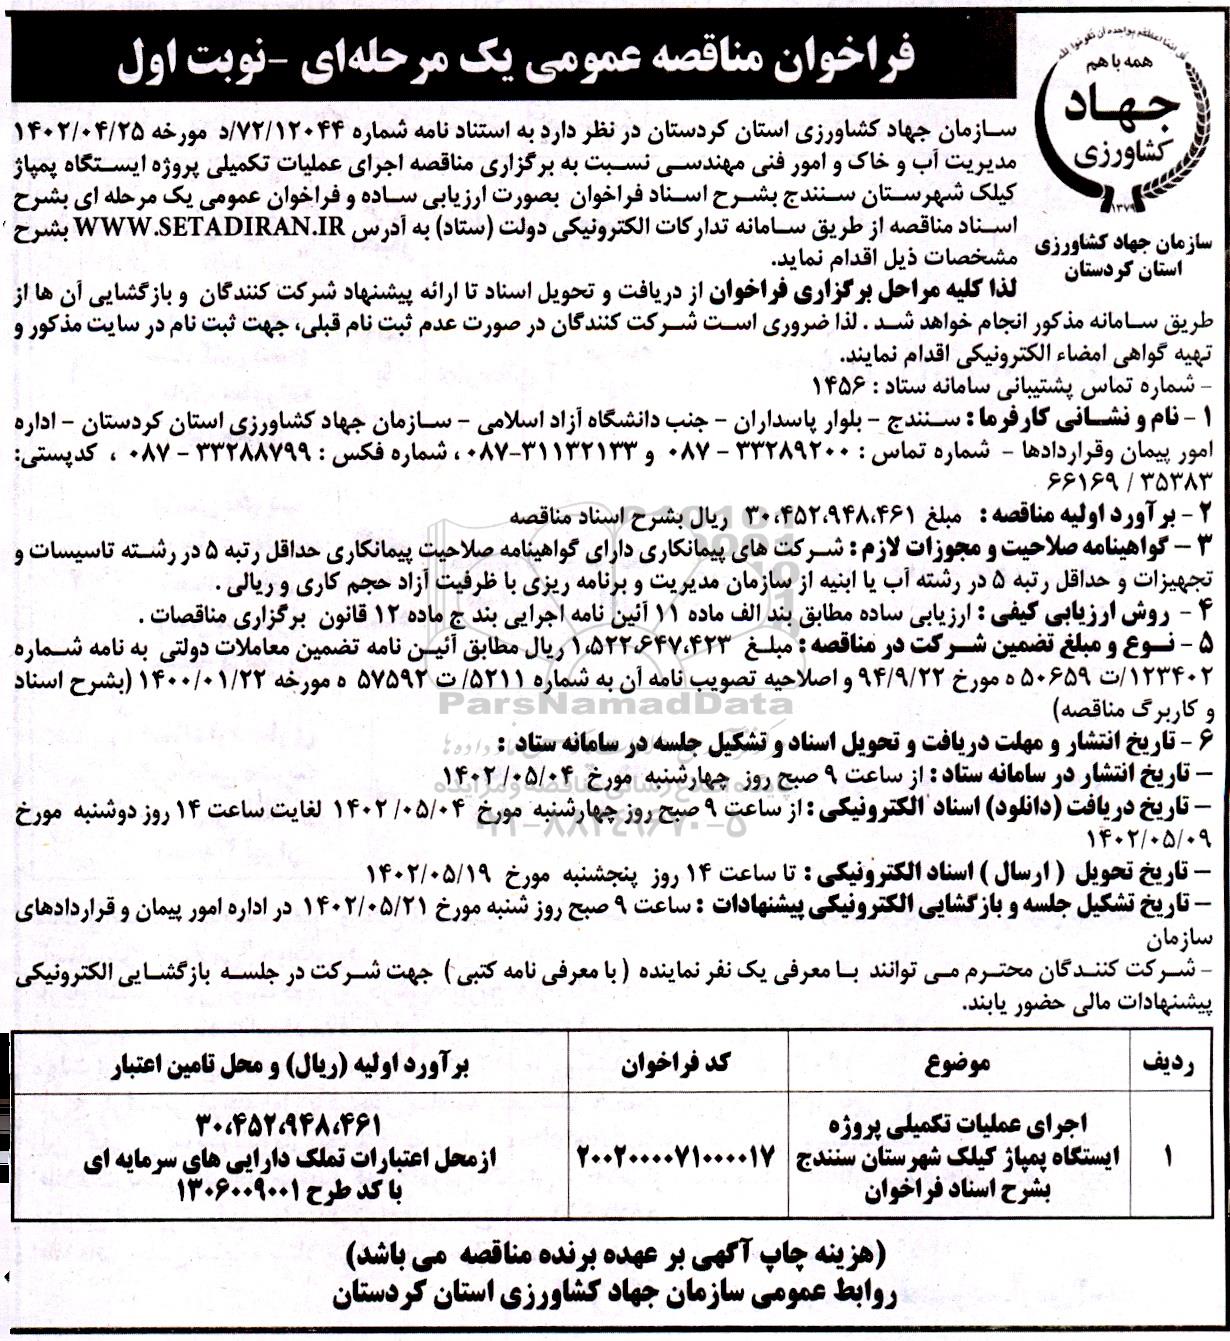 فراخوان مناقصه عمومی یک مرحله‌ای -نوبت اول
همه با هم
جهاد
کشاورزی
۱۳۷۹
سازمان جهاد کشاورزی
استان کردستان
سازمان جهاد کشاورزی استان کردستان در نظر دارد به استناد نامه شماره ۷۲/۱۲۰۴۴/د مورخه ۱۴۰۲/۰۴/۲۵
مدیریت آب و خاک و امور فنی مهندسی نسبت به برگزاری مناقصه اجرای عملیات تکمیلی پروژه ایستگاه پمپاژ
کیلک شهرستان سنندج بشرح اسناد فراخوان بصورت ارزیابی ساده و فراخوان عمومی یک مرحله ای بشرح
اسناد مناقصه از طریق سامانه تدارکات الکترونیکی دولت (ستاد) به آدرس WWW.SETADIRAN.IR بشرح
مشخصات ذیل اقدام نماید.
لذا کلیه مراحل برگزاری فراخوان از دریافت و تحویل اسناد تا ارائه پیشنهاد شرکت کنندگان و بازگشایی آن ها از
طریق سامانه مذکور انجام خواهد شد . لذا ضروری است شرکت کنندگان در صورت عدم ثبت نام قبلی، جهت ثبت نام در سایت مذکور و
تهیه گواهی امضاء الکترونیکی اقدام نمایند.
- شماره تماس پشتیبانی سامانه ستاد : ۱۴۵۶
۱ - نام و نشانی کارفرما : سنندج - بلوار پاسداران - جنب دانشگاه آزاد اسلامی - سازمان جهاد کشاورزی استان کردستان - اداره
امور پیمان وقراردادها - شماره تماس : ۳۳۲۸۹۲۰۰ - ۰۸۷ و ۳۱۱۳۲۱۳۳-۰۸۷ ، شماره فکس : ۳۳۲۸۸۷۹۹ - ۰۸۷ ، کدپستی:
۳۵۳۸۳ / ۶۶۱۶۹
۲ - برآورد اولیه مناقصه : مبلغ ۳۰،۴۵۲،۹۴۸،۴۶۱ ریال بشرح اسناد مناقصه
۳ - گواهینامه صلاحیت و مجوزات لازم : شرکت های پیمانکاری دارای گواهینامه صلاحیت پیمانکاری حداقل رتبه ۵ در رشته تاسیسات و
تجهیزات و حداقل رتبه ۵ در رشته آب یا ابنیه از سازمان مدیریت و برنامه ریزی با ظرفیت آزاد حجم کاری و ریالی .
۴ - روش ارزیابی کیفی : ارزیابی ساده مطابق بند الف ماده ۱۱ آئین نامه اجرایی بند ج ماده ۱۲ قانون برگزاری مناقصات .
۵ - نوع و مبلغ تضمین شرکت در مناقصه : مبلغ ۱،۵۲۲،۶۴۷،۴۲۳ ریال مطابق آئین نامه تضمین معاملات دولتی به نامه شماره
۱۲۳۴۰۲/ت ۵۰۶۵۹ ه مورخ ۹۴/۹/۲۲ و اصلاحیه تصویب نامه آن به شماره ۵۲۱۱/ ت ۵۷۵۹۲ ه مورخه ۱۴۰۰/۰۱/۲۲ (بشرح اسناد
و کاربرگ مناقصه)
۶ - تاریخ انتشار و مهلت دریافت و تحویل اسناد و تشکیل جلسه در سامانه ستاد :
- تاریخ انتشار در سامانه ستاد : از ساعت ۹ صبح روز چهارشنبه مورخ ۱۴۰۲/۰۵/۰۴
- تاریخ دریافت (دانلود) اسناد الکترونیکی : از ساعت ۹ صبح روز چهارشنبه مورخ ۱۴۰۲/۰۵/۰۴ لغایت ساعت ۱۴ روز دوشنبه مورخ
۱۴۰۲/۰۵/۰۹
- تاریخ تحویل ( ارسال ) اسناد الکترونیکی : تا ساعت ۱۴ روز پنجشنبه مورخ ۱۴۰۲/۰۵/۱۹
- تاریخ تشکیل جلسه و بازگشایی الکترونیکی پیشنهادات : ساعت ۹ صبح روز شنبه مورخ ۱۴۰۲/۰۵/۲۱ در اداره امور پیمان و قراردادهای
سازمان
- شرکت کنندگان محترم می توانند با معرفی یک نفر نماینده ( با معرفی نامه کتبی ) جهت شرکت در جلسه بازگشایی الکترونیکی
پیشنهادات مالی حضور یابند.
ردیف موضوع کد فراخوان برآورد اولیه (ریال) و محل تامین اعتبار
۱
اجرای عملیات تکمیلی پروژه
ایستگاه پمپاژ کیلک شهرستان سنندج
بشرح اسناد فراخوان
۲۰۰۲۰۰۰۰۷۱۰۰۰۰۱۷
۳۰،۴۵۲،۹۴۸،۴۶۱
ازمحل اعتبارات تملک دارایی های سرمایه ای
با کد طرح ۱۳۰۶۰۰۹۰۰۱
(هزینه چاپ آگهی بر عهده برنده مناقصه می باشد)
روابط عمومی سازمان جهاد کشاورزی استان کردستان
ParsNamadData
۰۲۱-۸۸۳۴۹۶۷۰-۵